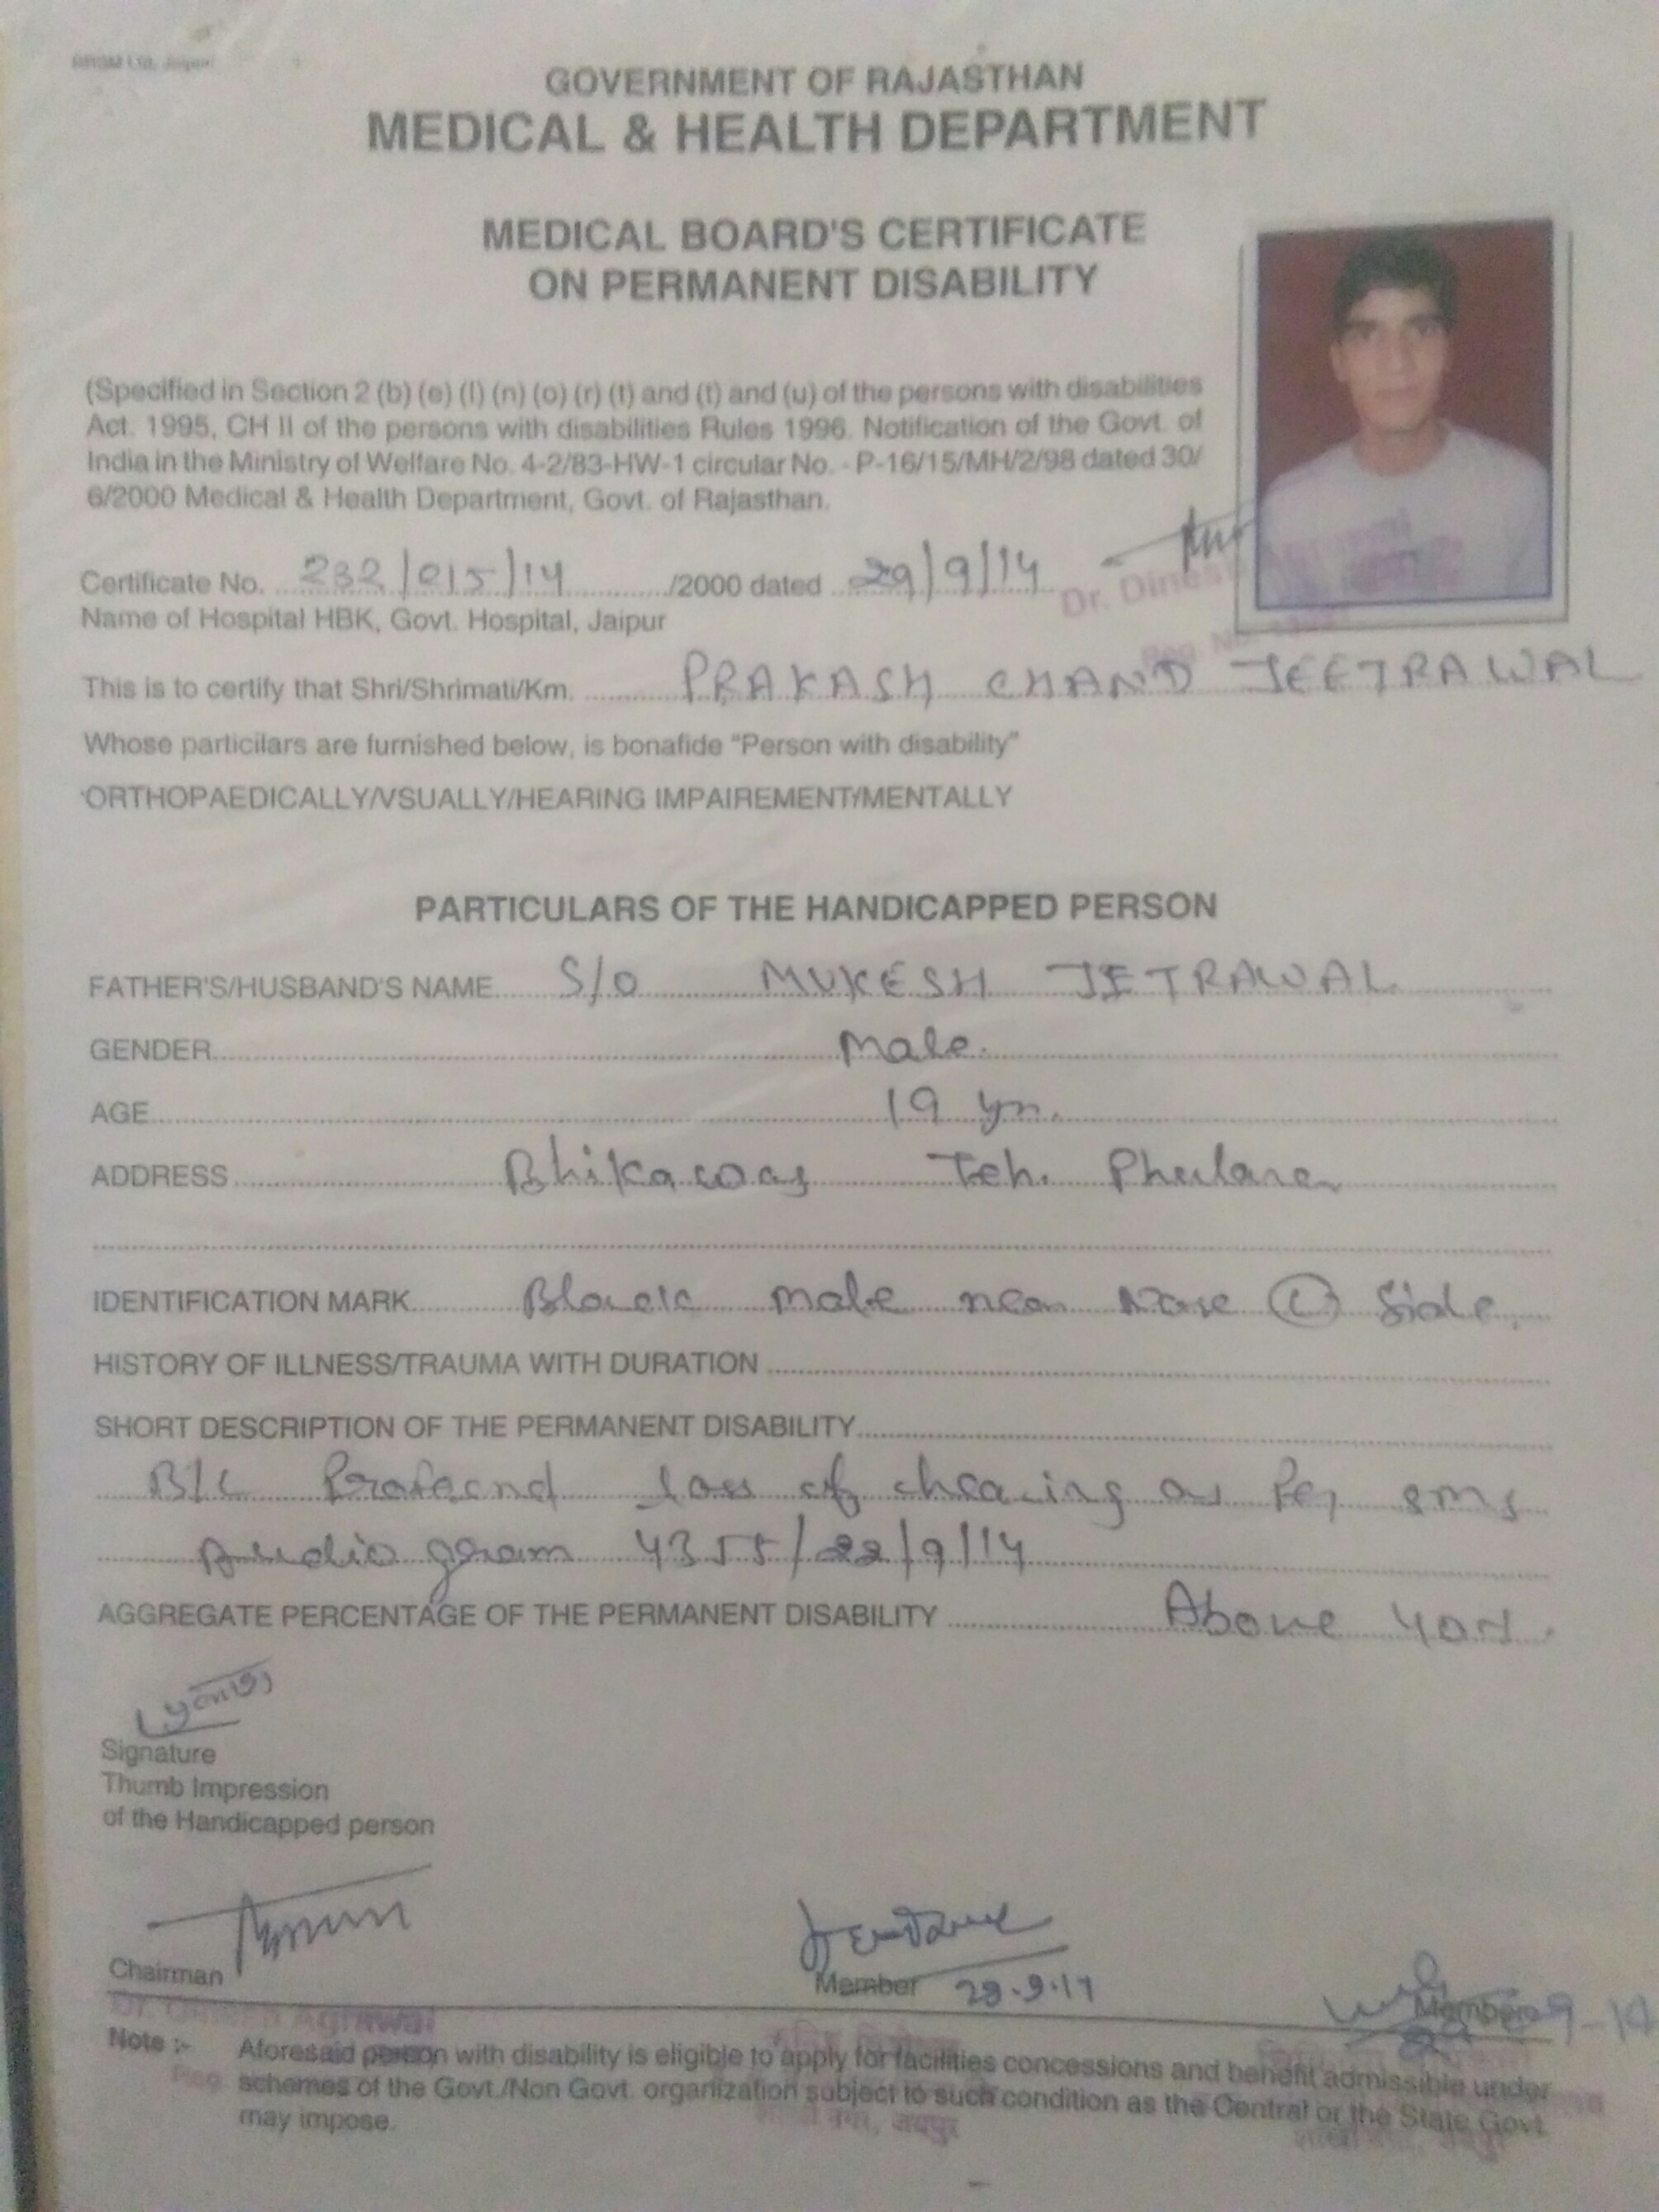 GOVERNMENT OF RAJASTHAN
MEDICAL & HEALTH DEPARTMENT
MEDICAL BOARD'S CERTIFICATE
ON PERMANENT DISABILITY
(Specified in Section 2 (b) (e) (l) (n) (o) (r) (t) and (t) and (u) of the persons with disabilities
Act. 1995, CH II of the persons with disabilities Rules 1996. Notification of the Govt. of
India in the Ministry of Welfare No. 4-2/83-HW-1 circular No. - P-16/15/MH/2/98 dated 30/
6/2000 Medical & Health Department, Govt. of Rajasthan.
Certificate No. 232/015/14 /2000 dated 29/9/14
Dr. Dinesh
Name of Hospital HBK, Govt. Hospital, Jaipur
This is to certify that Shri/Shrimati/Km. PRAKASH CHAND JEETRAWAL
Whose particilars are furnished below, is bonafide "Person with disability"
ORTHOPAEDICALLY/VSUALLY/HEARING IMPAIREMENT/MENTALLY
PARTICULARS OF THE HANDICAPPED PERSON
FATHER'S/HUSBAND'S NAME S/O MUKESH JETRAWAL
GENDER Male.
AGE 19 yrs.
ADDRESS Teh. Phulera
IDENTIFICATION MARK Black mole near Nose (L) Side.
HISTORY OF ILLNESS/TRAUMA WITH DURATION
SHORT DESCRIPTION OF THE PERMANENT DISABILITY
B/L Profound loss of hearing as Per SMS
Audiogram 4355/22/9/14
AGGREGATE PERCENTAGE OF THE PERMANENT DISABILITY Above 40%.
Signature
Thumb Impression
of the Handicapped person
Chairman
Member
Member
Dr. Dinesh Agrawal
Note :- Aforesaid person with disability is eligible to apply for facilities concessions and benefit admissible under
schemes of the Govt./Non Govt. organlization subject to such condition as the Central or the State Govt.
may impose.